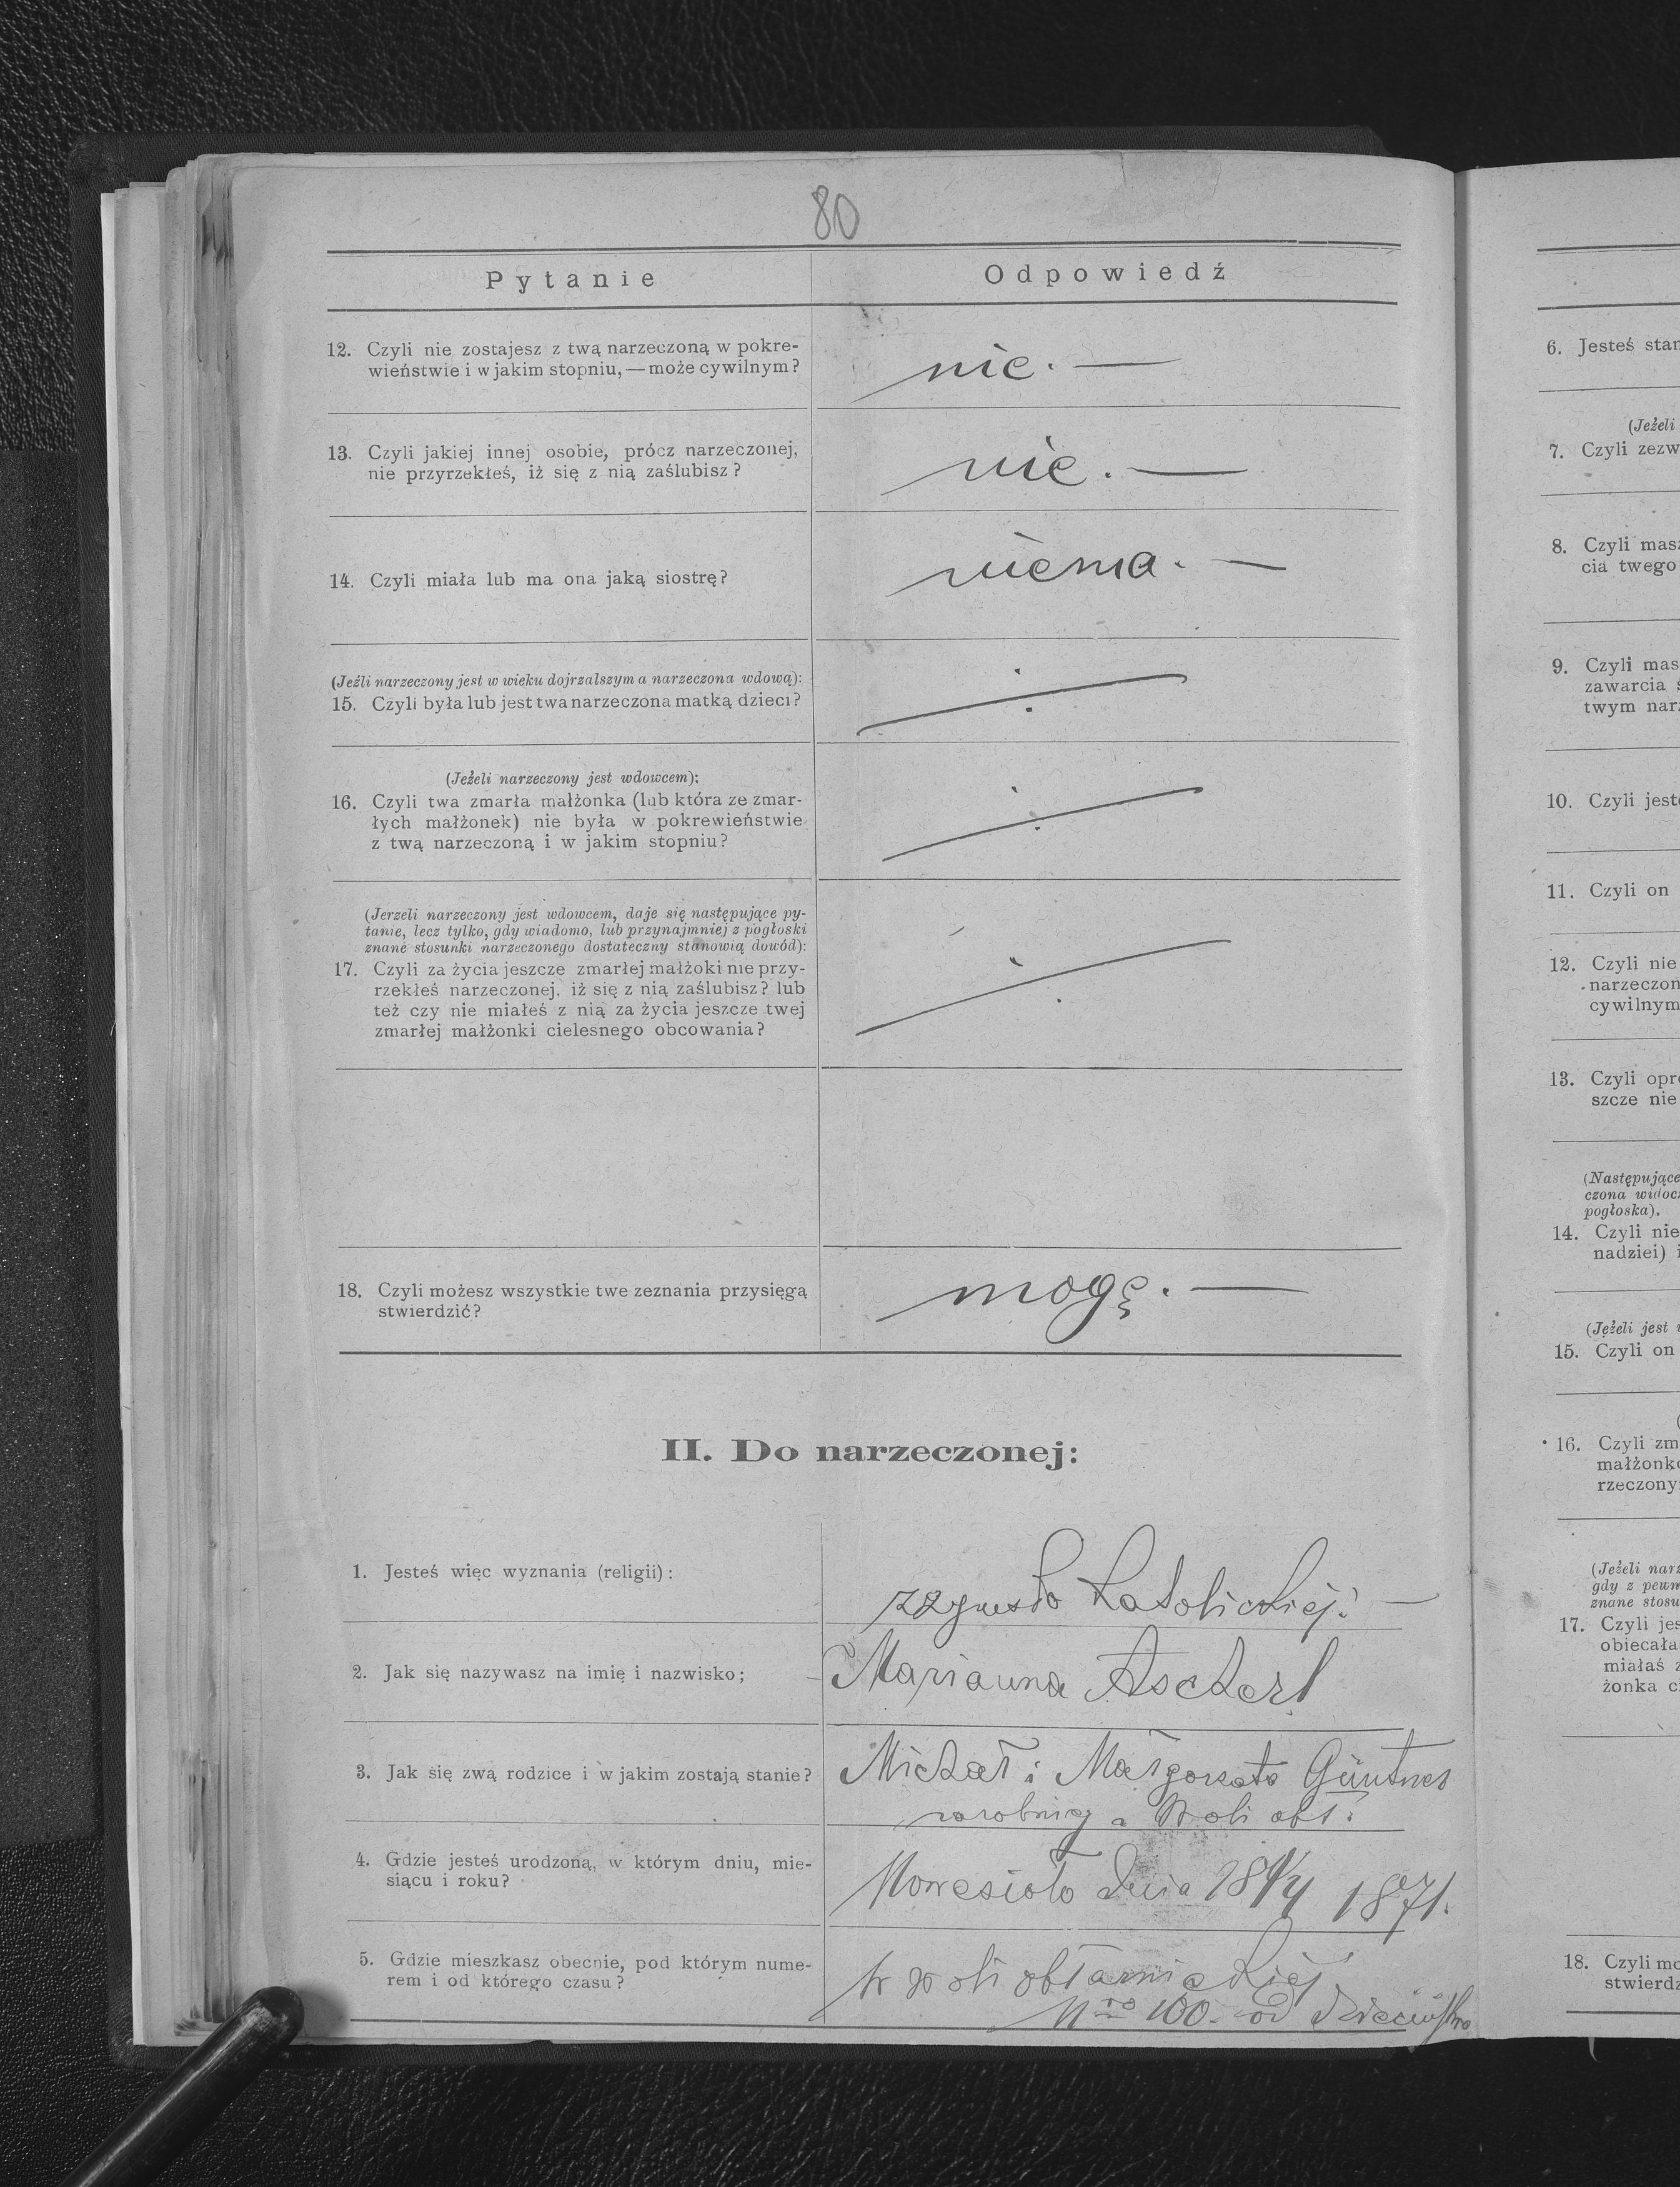 80
Pytanie
Odpowiedź
12. Czyli nie zostajesz z twą narzeczoną w pokre-
wieństwie i w jakim stopniu, — może cywilnym?
nie. —
13. Czyli jakiej innej osobie, prócz narzeczonej,
nie przyrzekłeś, iż się z nią zaślubisz?
nie. —
14. Czyli miała lub ma ona jaką siostrę?
niema. —
(Jeźli narzeczony jest w wieku dojrzalszym a narzeczona wdową):
15. Czyli była lub jest twa narzeczona matką dzieci?
(Jeżeli narzeczony jest wdowcem):
16. Czyli twa zmarła małżonka (lub która ze zmar-
łych małżonek) nie była w pokrewieństwie
z twą narzeczoną i w jakim stopniu?
(Jerzeli narzeczony jest wdowcem, daje się następujące py-
tanie, lecz tylko, gdy wiadomo, lub przynajmniej z pogłoski
znane stosunki narzeczonego dostateczny stanowią dowód):
17. Czyli za życia jeszcze zmarłej małżoki nie przy-
rzekłeś narzeczonej, iż się z nią zaślubisz? lub
też czy nie miałeś z nią za życia jeszcze twej
zmarłej małżonki cielesnego obcowania?
18. Czyli możesz wszystkie twe zeznania przysięgą
stwierdzić?
mogę. —
II. Do narzeczonej:
1. Jesteś więc wyznania (religii):
Katolickiej. —
2. Jak się nazywasz na imię i nazwisko;
Marianna Ascherl
3. Jak się zwą rodzice i w jakim zostają stanie?
Michał i Małgorzata Güntner
Woli obł.
4. Gdzie jesteś urodzoną, w którym dniu, mie-
siącu i roku?
dnia 1871.
5. Gdzie mieszkasz obecnie, pod którym nume-
rem i od którego czasu?
w Woli obłaznickiej
Nro 100. od dzieciństwa
6. Jesteś stan
(Jeżeli
7. Czyli zezw
8. Czyli masz
cia twego
9. Czyli mas
zawarcia ś
twym narz
10. Czyli jeste
11. Czyli on
12. Czyli nie
narzeczon
cywilnym
13. Czyli opró
szcze nie
(Następujące
czona widocz
pogłoska).
14. Czyli nie
nadziei) i
(Jeżeli jest w
15. Czyli on
16. Czyli zm
małżonko
rzeczony
(Jeżeli narz
gdy z pewn
znane stosu
17. Czyli jes
obiecała
miałaś z
żonka ci
18. Czyli mo
stwierdz